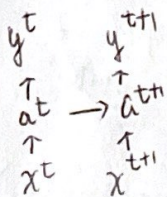 y^t y^{t+1}
↑ ↑
a^t → a^{t+1}
↑ ↑
x^t x^{t+1}